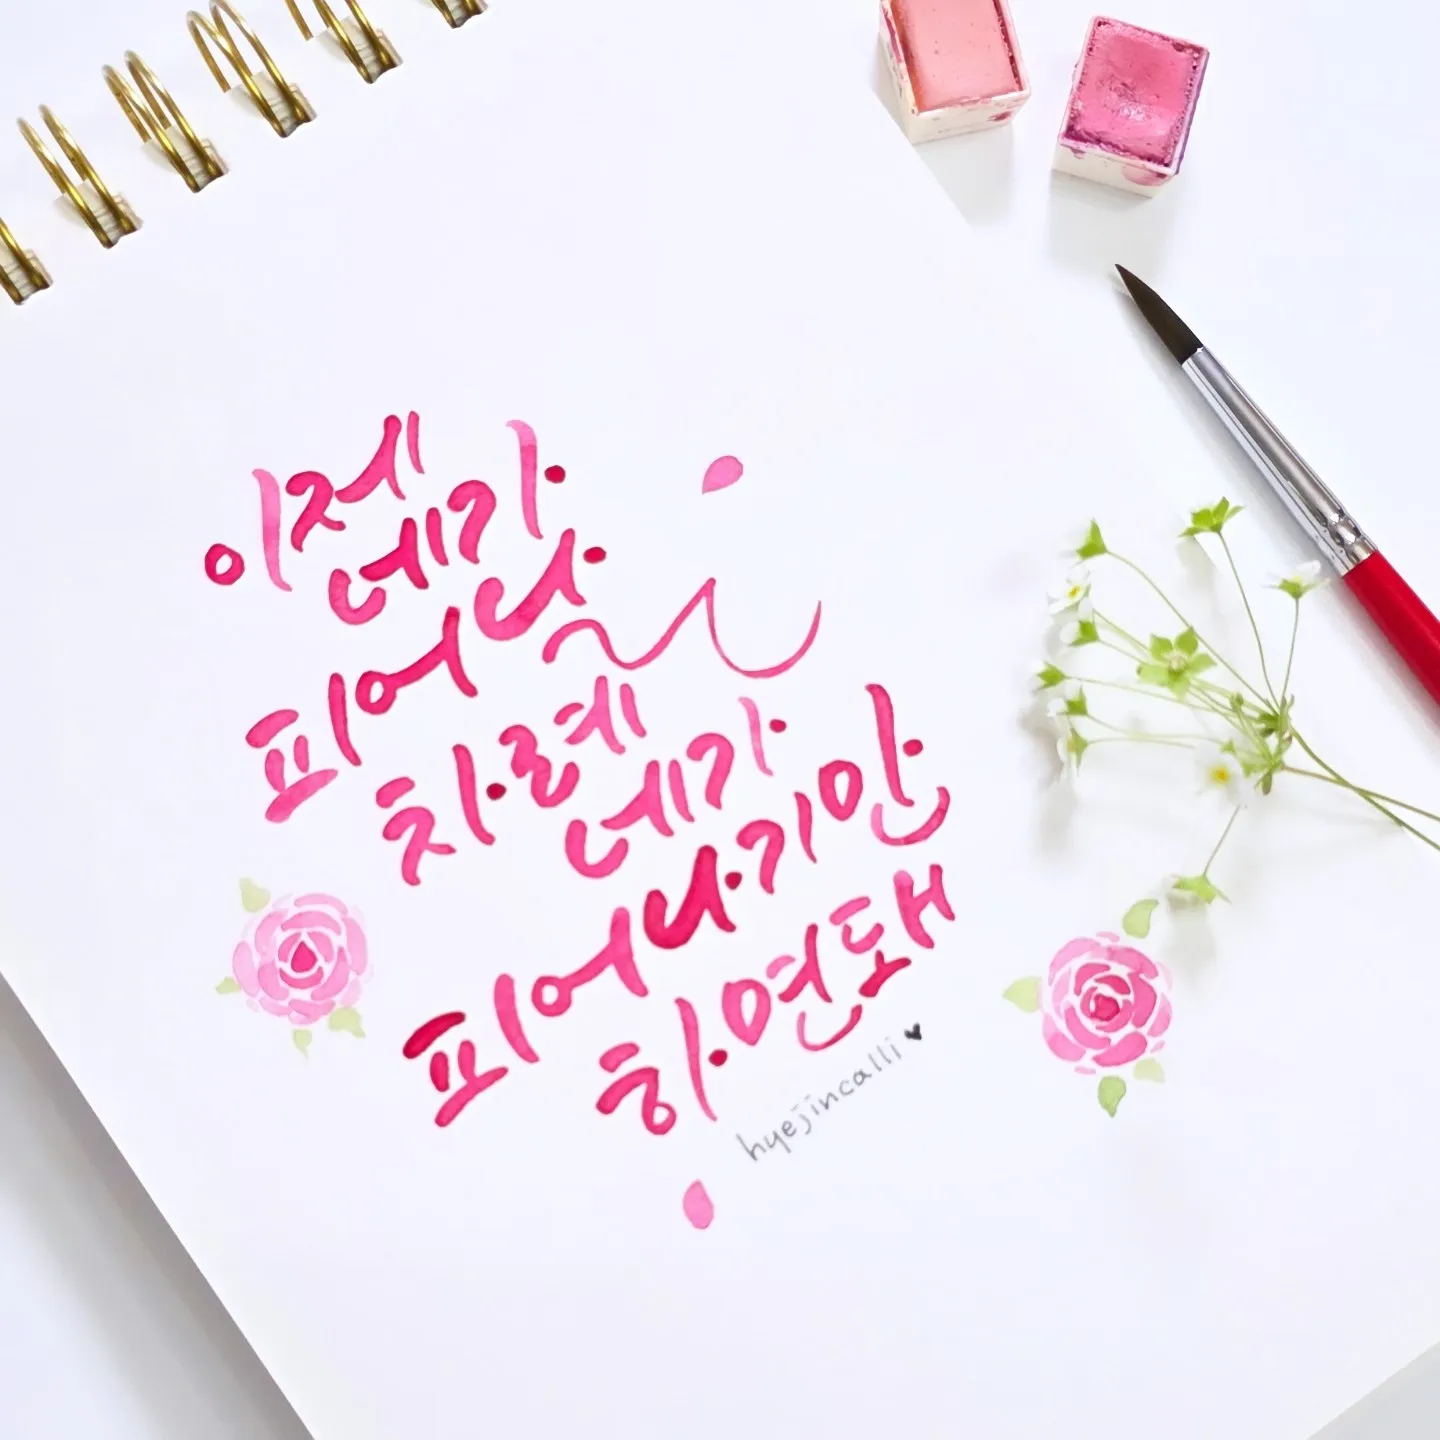 이제
네가
피어나
차례
네가
피어나기만
하면돼
hyejincalli